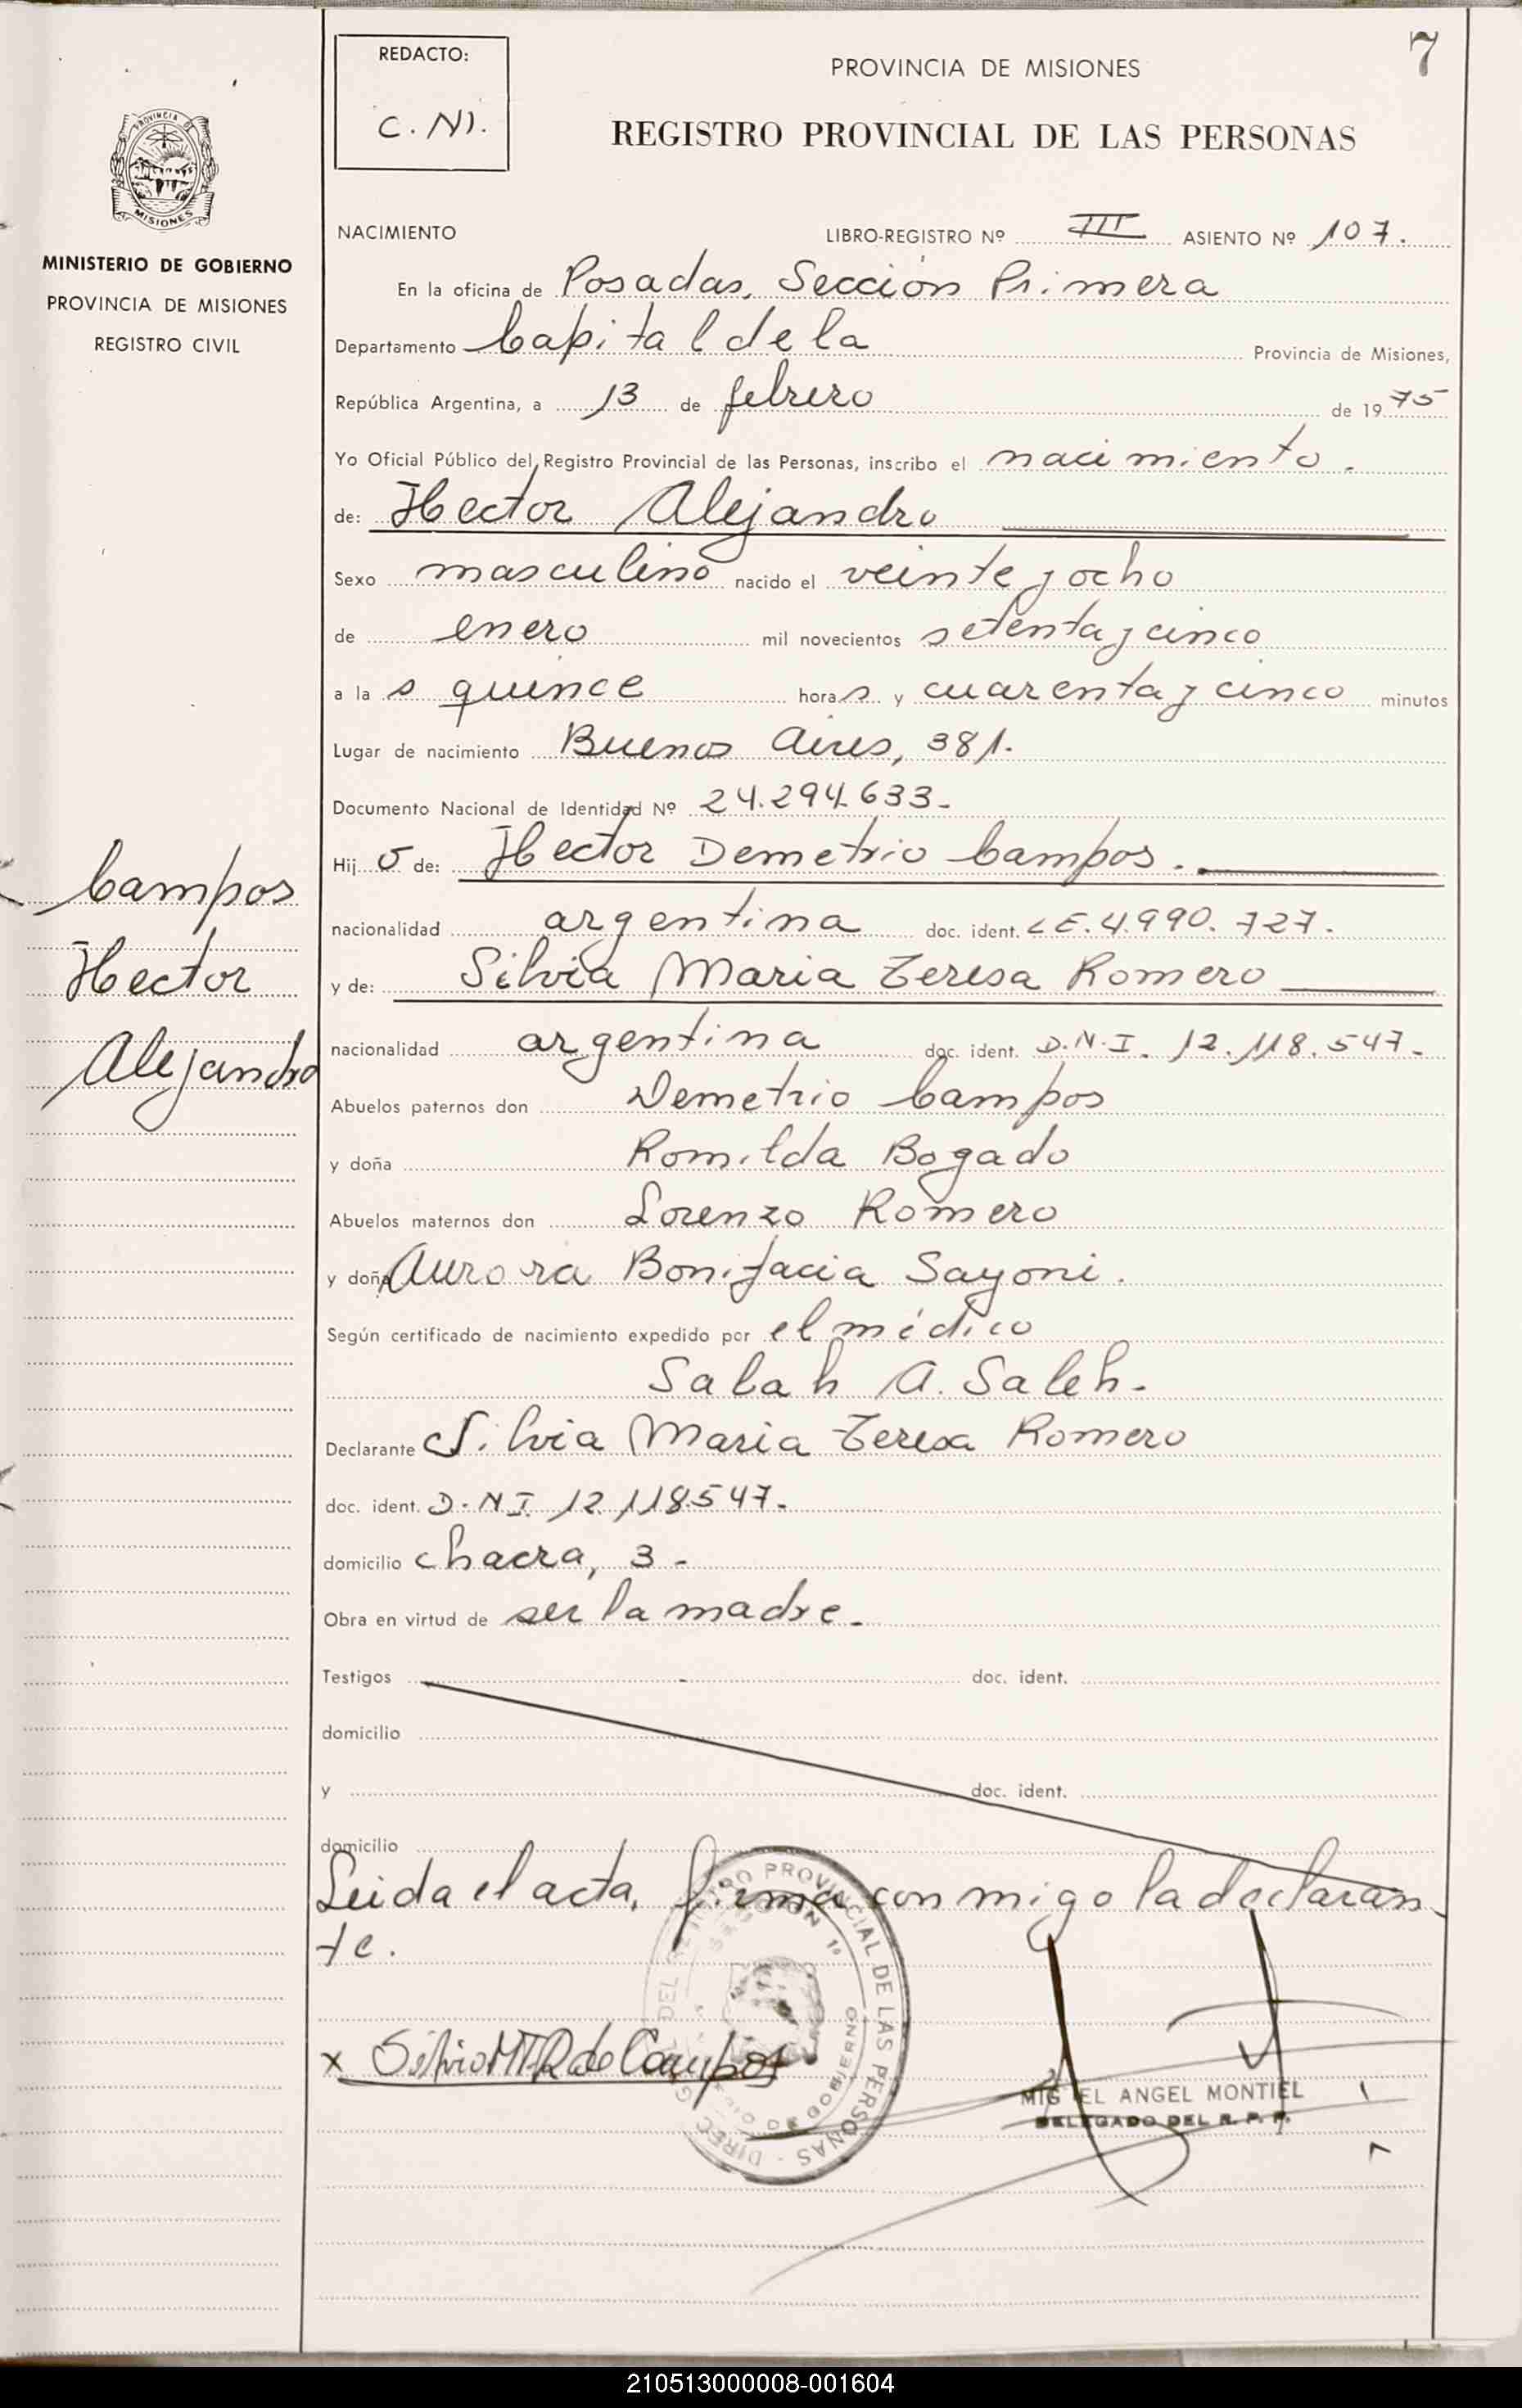 7
REDACTO:
C. M.
PROVINCIA DE MISIONES
REGISTRO PROVINCIAL DE LAS PERSONAS
PROVINCIA DE
MISIONES
MINISTERIO DE GOBIERNO
PROVINCIA DE MISIONES
REGISTRO CIVIL
NACIMIENTO LIBRO-REGISTRO Nº III ASIENTO Nº 107.
En la oficina de Posadas, Sección Primera
Departamento Capital de la Provincia de Misiones,
República Argentina, a 13 de febrero de 1975
Yo Oficial Público del Registro Provincial de las Personas, inscribo el nacimiento.
de: Hector Alejandro
Sexo masculino nacido el veinte y ocho
de enero mil novecientos setenta y cinco
a las quince horas y cuarenta y cinco minutos
Lugar de nacimiento Buenos Aires, 381.
Documento Nacional de Identidad Nº 24.294.633-
Hijo de: Hector Demetrio Campos.
nacionalidad argentina doc. ident. L.E. 4.990.727.
y de: Silvia Maria Teresa Romero
nacionalidad argentina doc. ident. D.N.I. 12.118.547-
Abuelos paternos don Demetrio Campos
y doña Romilda Bogado
Abuelos maternos don Lorenzo Romero
y doña Aurora Bonifacia Sayoni.
Según certificado de nacimiento expedido por el médico
Salah A. Saleh.
Declarante Silvia Maria Teresa Romero
doc. ident. D.N.I. 12.118.547-
domicilio chacra, 3-
Obra en virtud de ser la madre-
Testigos doc. ident.
domicilio
y doc. ident.
domicilio
Leida el acta, firma conmigo la declaran
te.
Campos
Hector
Alejandro
x Silvia MTR de Campos
MIGUEL ANGEL MONTIEL
DELEGADO DEL R. P. P.
210513000008-001604